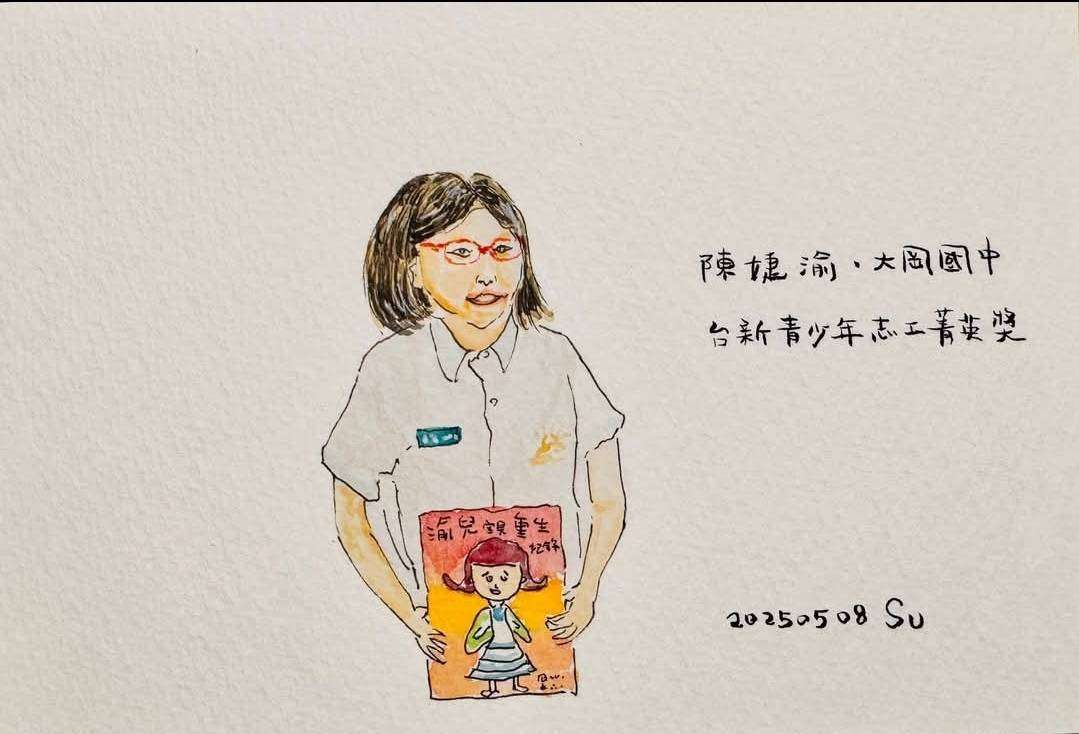 陳婕渝、大岡國中
台新青少年志工菁英獎
渝兒誤重生
紀錄
20250508 Su